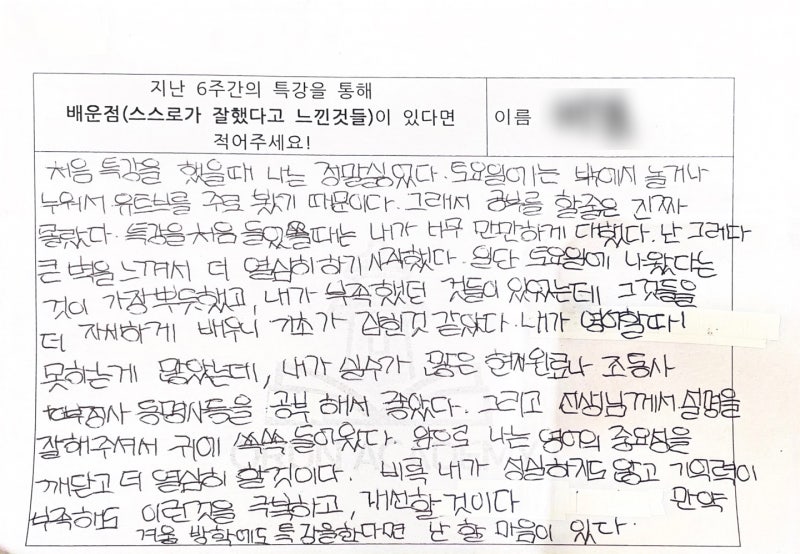 지난 6주간의 특강을 통해
배운점(스스로가 잘했다고 느낀것들)이 있다면
적어주세요!
이름
처음 특강을 했을때 나는 정말싫었다. 토요일이라는 밖에서 놀거나
누워서 유튜브를 주로 봤기 때문이다. 그래서 공부를 할줄은 진짜
몰랐다. 특강을 처음 들었을때는 내가 너무 만만하게 대했다. 난 그러다
큰 벽을 느껴서 더 열심히하기 시작했다. 일단 토요일에 나왔다는
것이 가장 뿌듯했고, 내가 부족했던 것들이 있었는데 그것들을
더 자세하게 배우니 기초가 잡힌것 같았다. 내가 영어할때
못하는게 많았는데, 내가 실수가 많은 현재완료나 조동사
부정사 동명사등을 공부 해서 좋았다. 그리고 선생님께서 설명을
잘해주셔서 귀에 쏙쏙 들어왔다. 앞으로 나는 영어의 중요성을
깨닫고 더 열심히 할것이다. 비록 내가 성실하지도 않고 기억력이
부족하도 이런것을 극복하고, 개선할 것이다 만약
겨울 방학에도 특강을한다면 난 할 마음이 있다.
ORUN ACADEMY